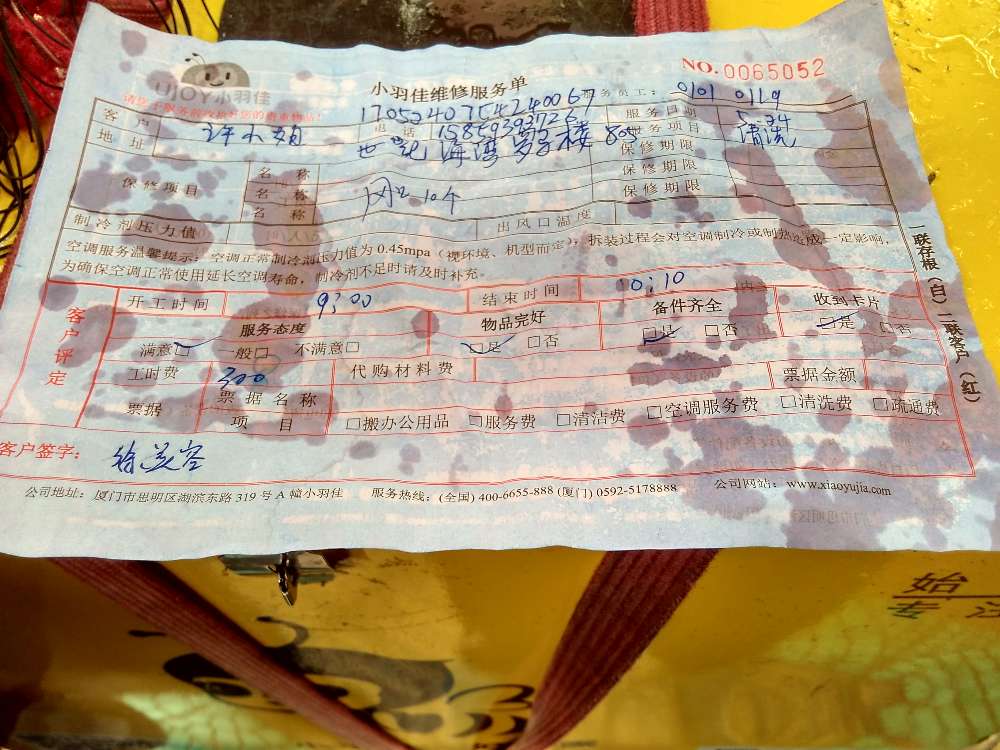 UJOY小羽佳
小羽佳维修服务单
NO.0065052
服务员工: 0101 0119
1705240754240067
客户 许小姐 电话 15859393726 服务日期 5.24
地址 世纪海湾写字楼 805 服务项目 清洗
保修项目 名称 保修期限
名称 风口10个 保修期限
名称 保修期限
制冷剂压力值 出风口温度
空调服务温馨提示:空调正常制冷剂压力值为0.45mpa(视环境、机型而定),拆装过程会对空调制冷或制热造成一定影响,
为确保空调正常使用延长空调寿命,制冷剂不足时请及时补充。
客户评定
开工时间 9:00 结束时间 10:10
服务态度 物品完好 备件齐全 收到卡片
满意□ 一般□ 不满意□ □是 □否 □是 □否 □是 □否
工时费 300 代购材料费 票据金额
票据 票据名称
项目 □搬办公用品 □服务费 □清洁费 □空调服务费 □清洗费 □疏通费
客户签字:
一联存根(白)二联客户(红)
公司地址:厦门市思明区湖滨东路319号A幢小羽佳 服务热线:(全国) 400-6655-888 (厦门) 0592-5178888 公司网站:www.xiaoyujia.com
始
专